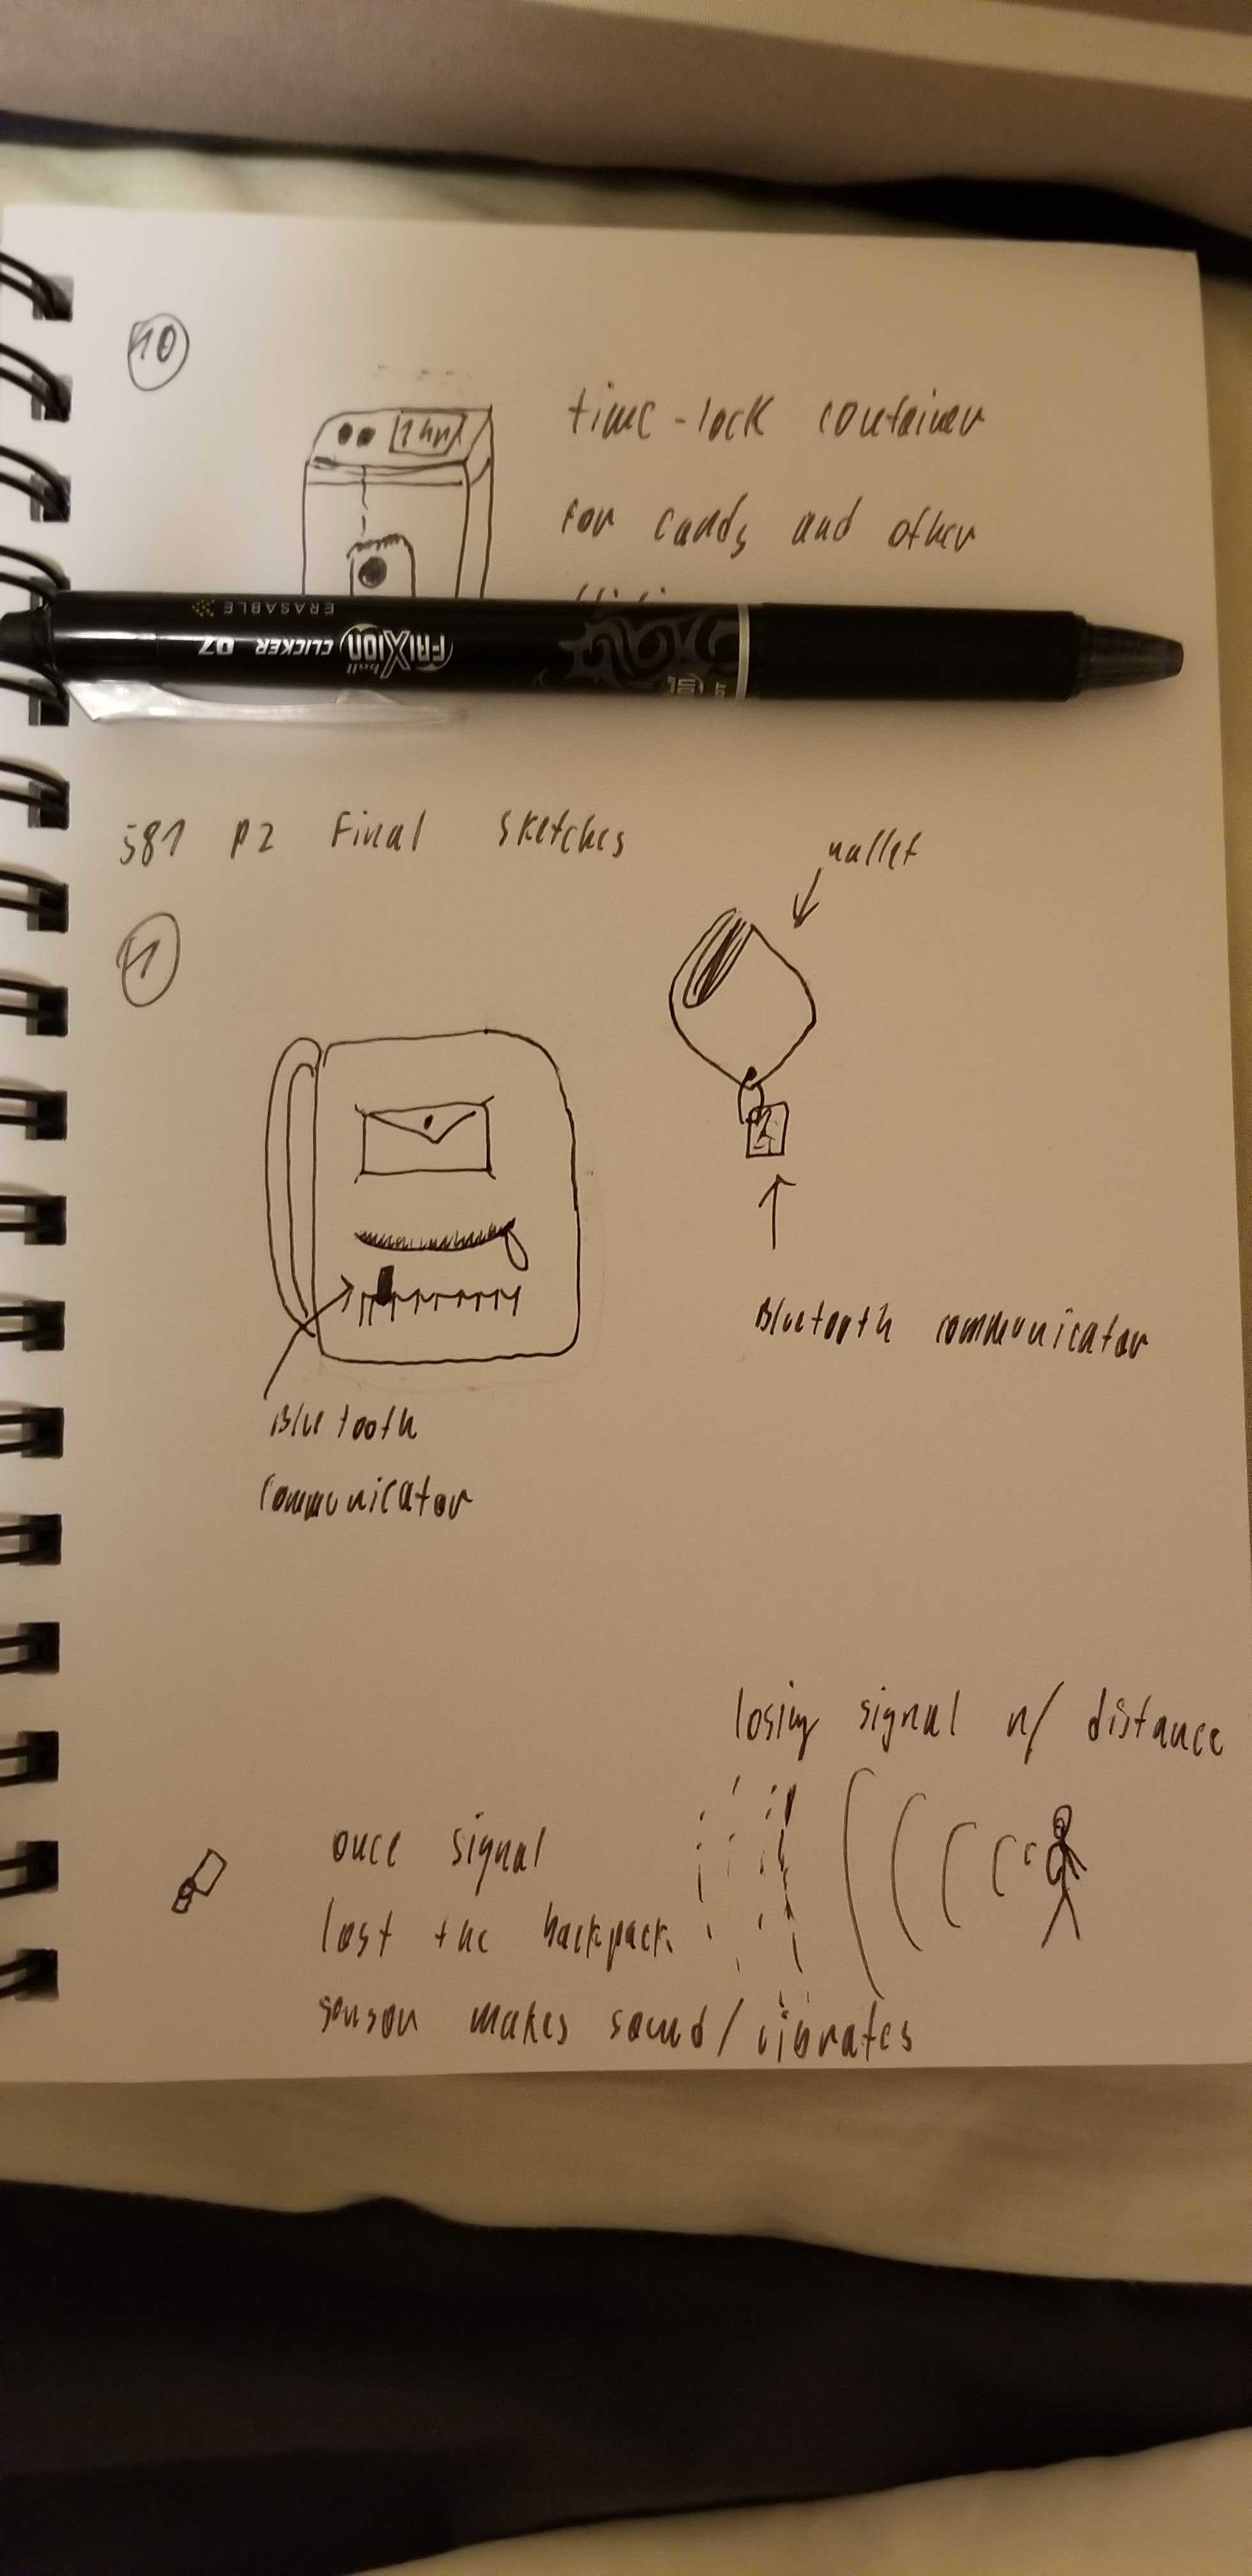 10
1 hr
time-lock container
for candy and other
ERASABLE
FRIXION ball CLICKER 07
581 P2 Final sketches
wallet
1
Bluetooth communicator
Bluetooth
communicator
losing signal w/ distance
once signal
lost the backpack
sensor makes sound/vibrates